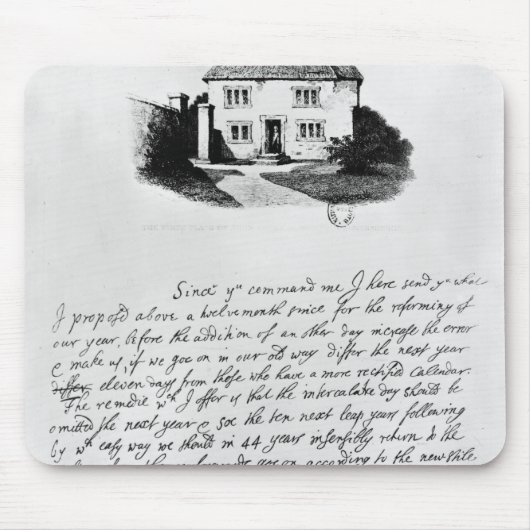 Since yu command me I here send yu what
I proposd above a twelvemonth since for the reforming of
our year, before the addition of an other day increase the error
& make us, if we goe on in our old way differ the next year
differ eleven days from those who have a more rectified Calendar.
The remedie wch I offer is that the intercalare day should be
omitted the next year & soe the ten next leap years following
by wch easy way we should in 44 years insensibly return to the
according to the new stile